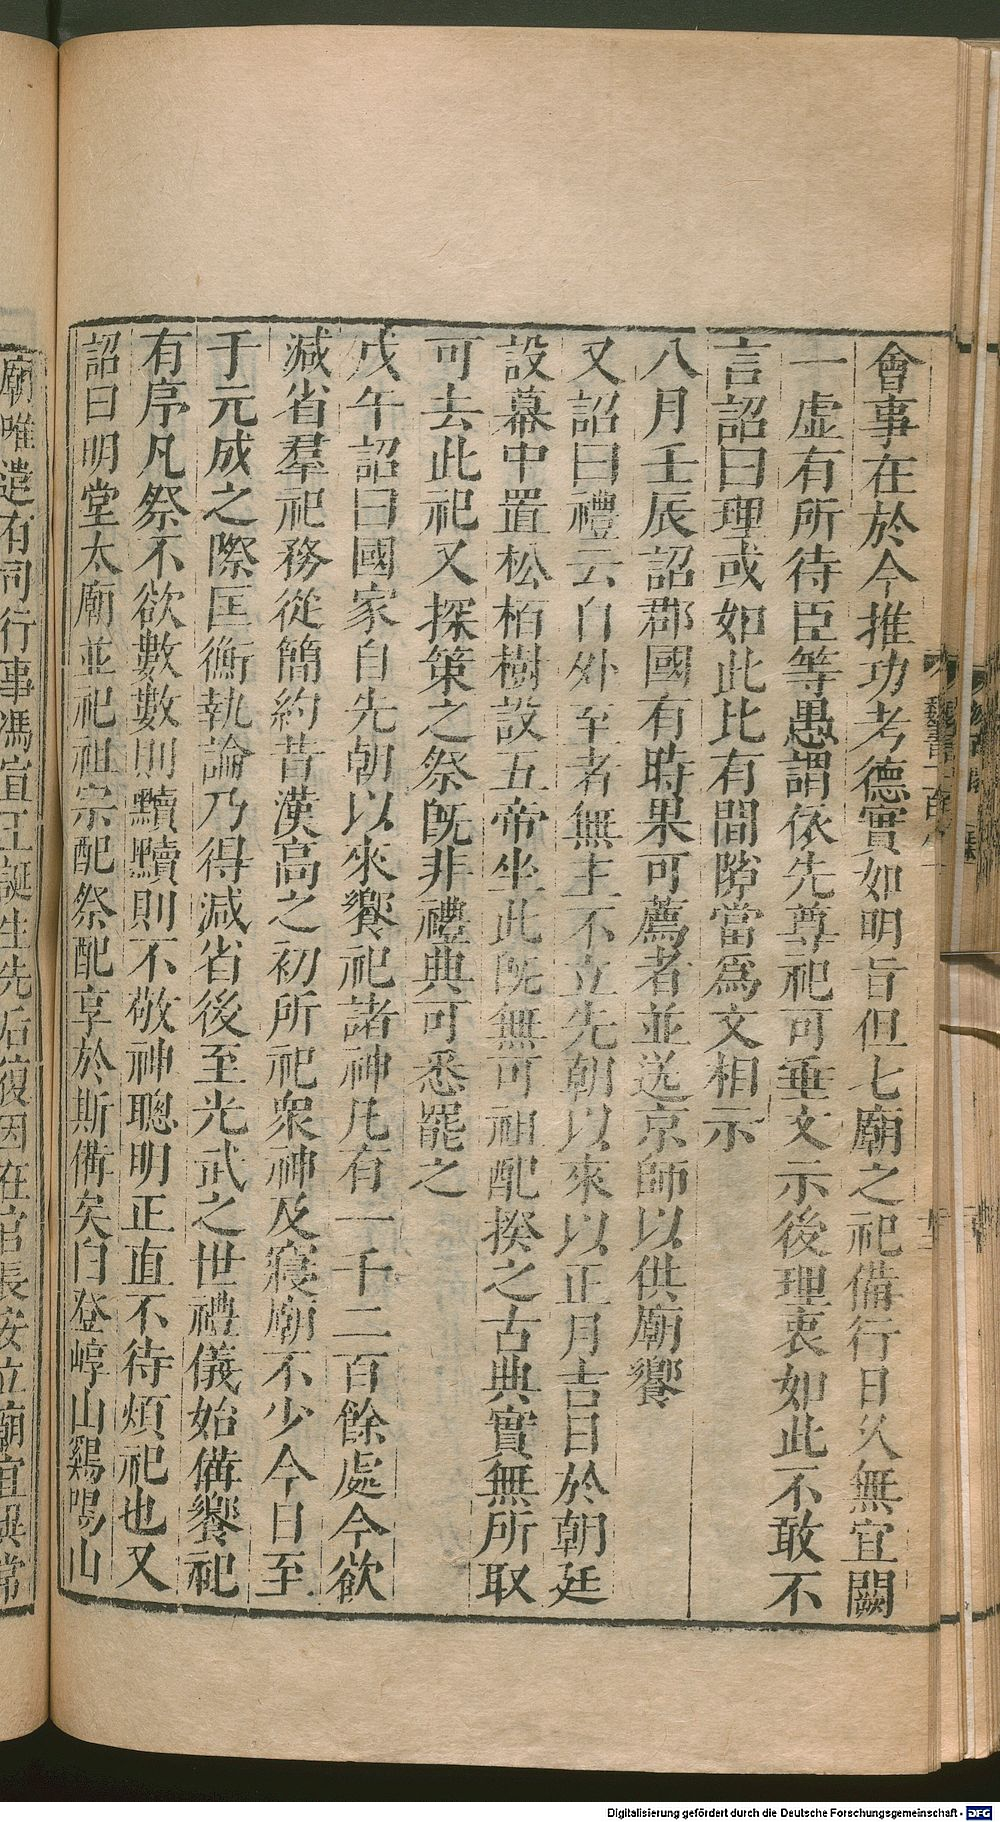 會事在於今推功考德實如明旨但七廟之祀備行日久無宜闕
一虛有所待臣等愚謂依先尊祀可垂文示後理衷如此不敢不
言詔曰理或如此比有間隙當爲文相示
八月壬辰詔郡國有時果可薦者並送京師以供廟饗
又詔曰禮云自外至者無主不立先朝以來以正月吉日於朝廷
設幕中置松柏樹設五帝坐此既無可祖配揆之古典實無所取
可去此祀又探策之祭既非禮典可悉罷之
戊午詔曰國家自先朝以來饗祀諸神凡有一千二百餘處今欲
減省羣祀務從簡約昔漢高之初所祀衆神及寢廟不少今日至
于元成之際匡衡執論乃得減省後至光武之世禮儀始備饗祀
有序凡祭不欲數數則黷黷則不敬神聰明正直不待煩祀也又
詔曰明堂太廟並祀祖宗配祭配享於斯備矣白登崞山鷄鳴山
廟唯遣有司行事馮宣王誕生先后復因在官長安立廟宜異常
魏書一百八
Digitalisierung gefördert durch die Deutsche Forschungsgemeinschaft - DFG